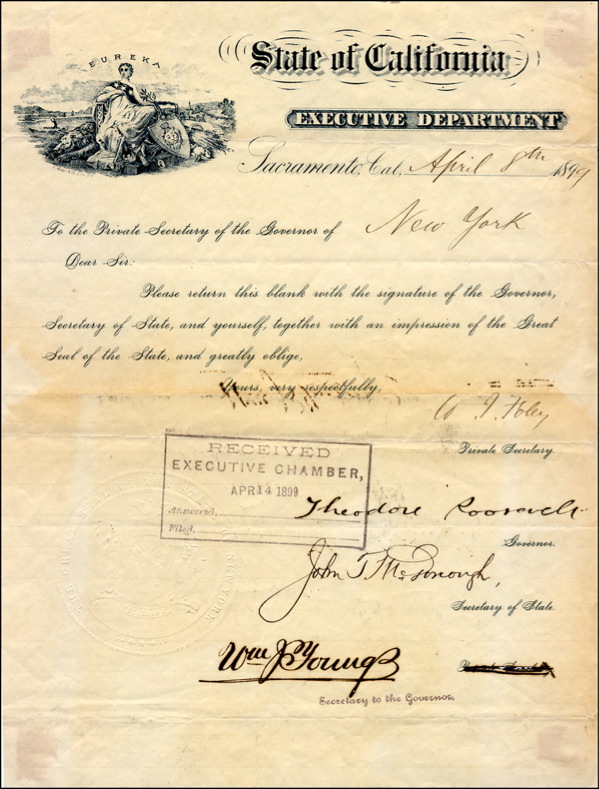 EUREKA
State of California
EXECUTIVE DEPARTMENT
Sacramento, Cal. April 8th 1899
To the Private Secretary of the Governor of New York
Dear Sir:
Please return this blank with the signature of the Governor,
Secretary of State, and yourself, together with an impression of the Great
Seal of the State, and greatly oblige,
Yours, very respectfully,
W. I. Foley
Private Secretary.
RECEIVED
EXECUTIVE CHAMBER,
APR 14 1899
Answered,
Filed,
Theodore Roosevelt
Governor.
John T. McDonough,
Secretary of State.
Wm J Youngs
Secretary to the Governor.